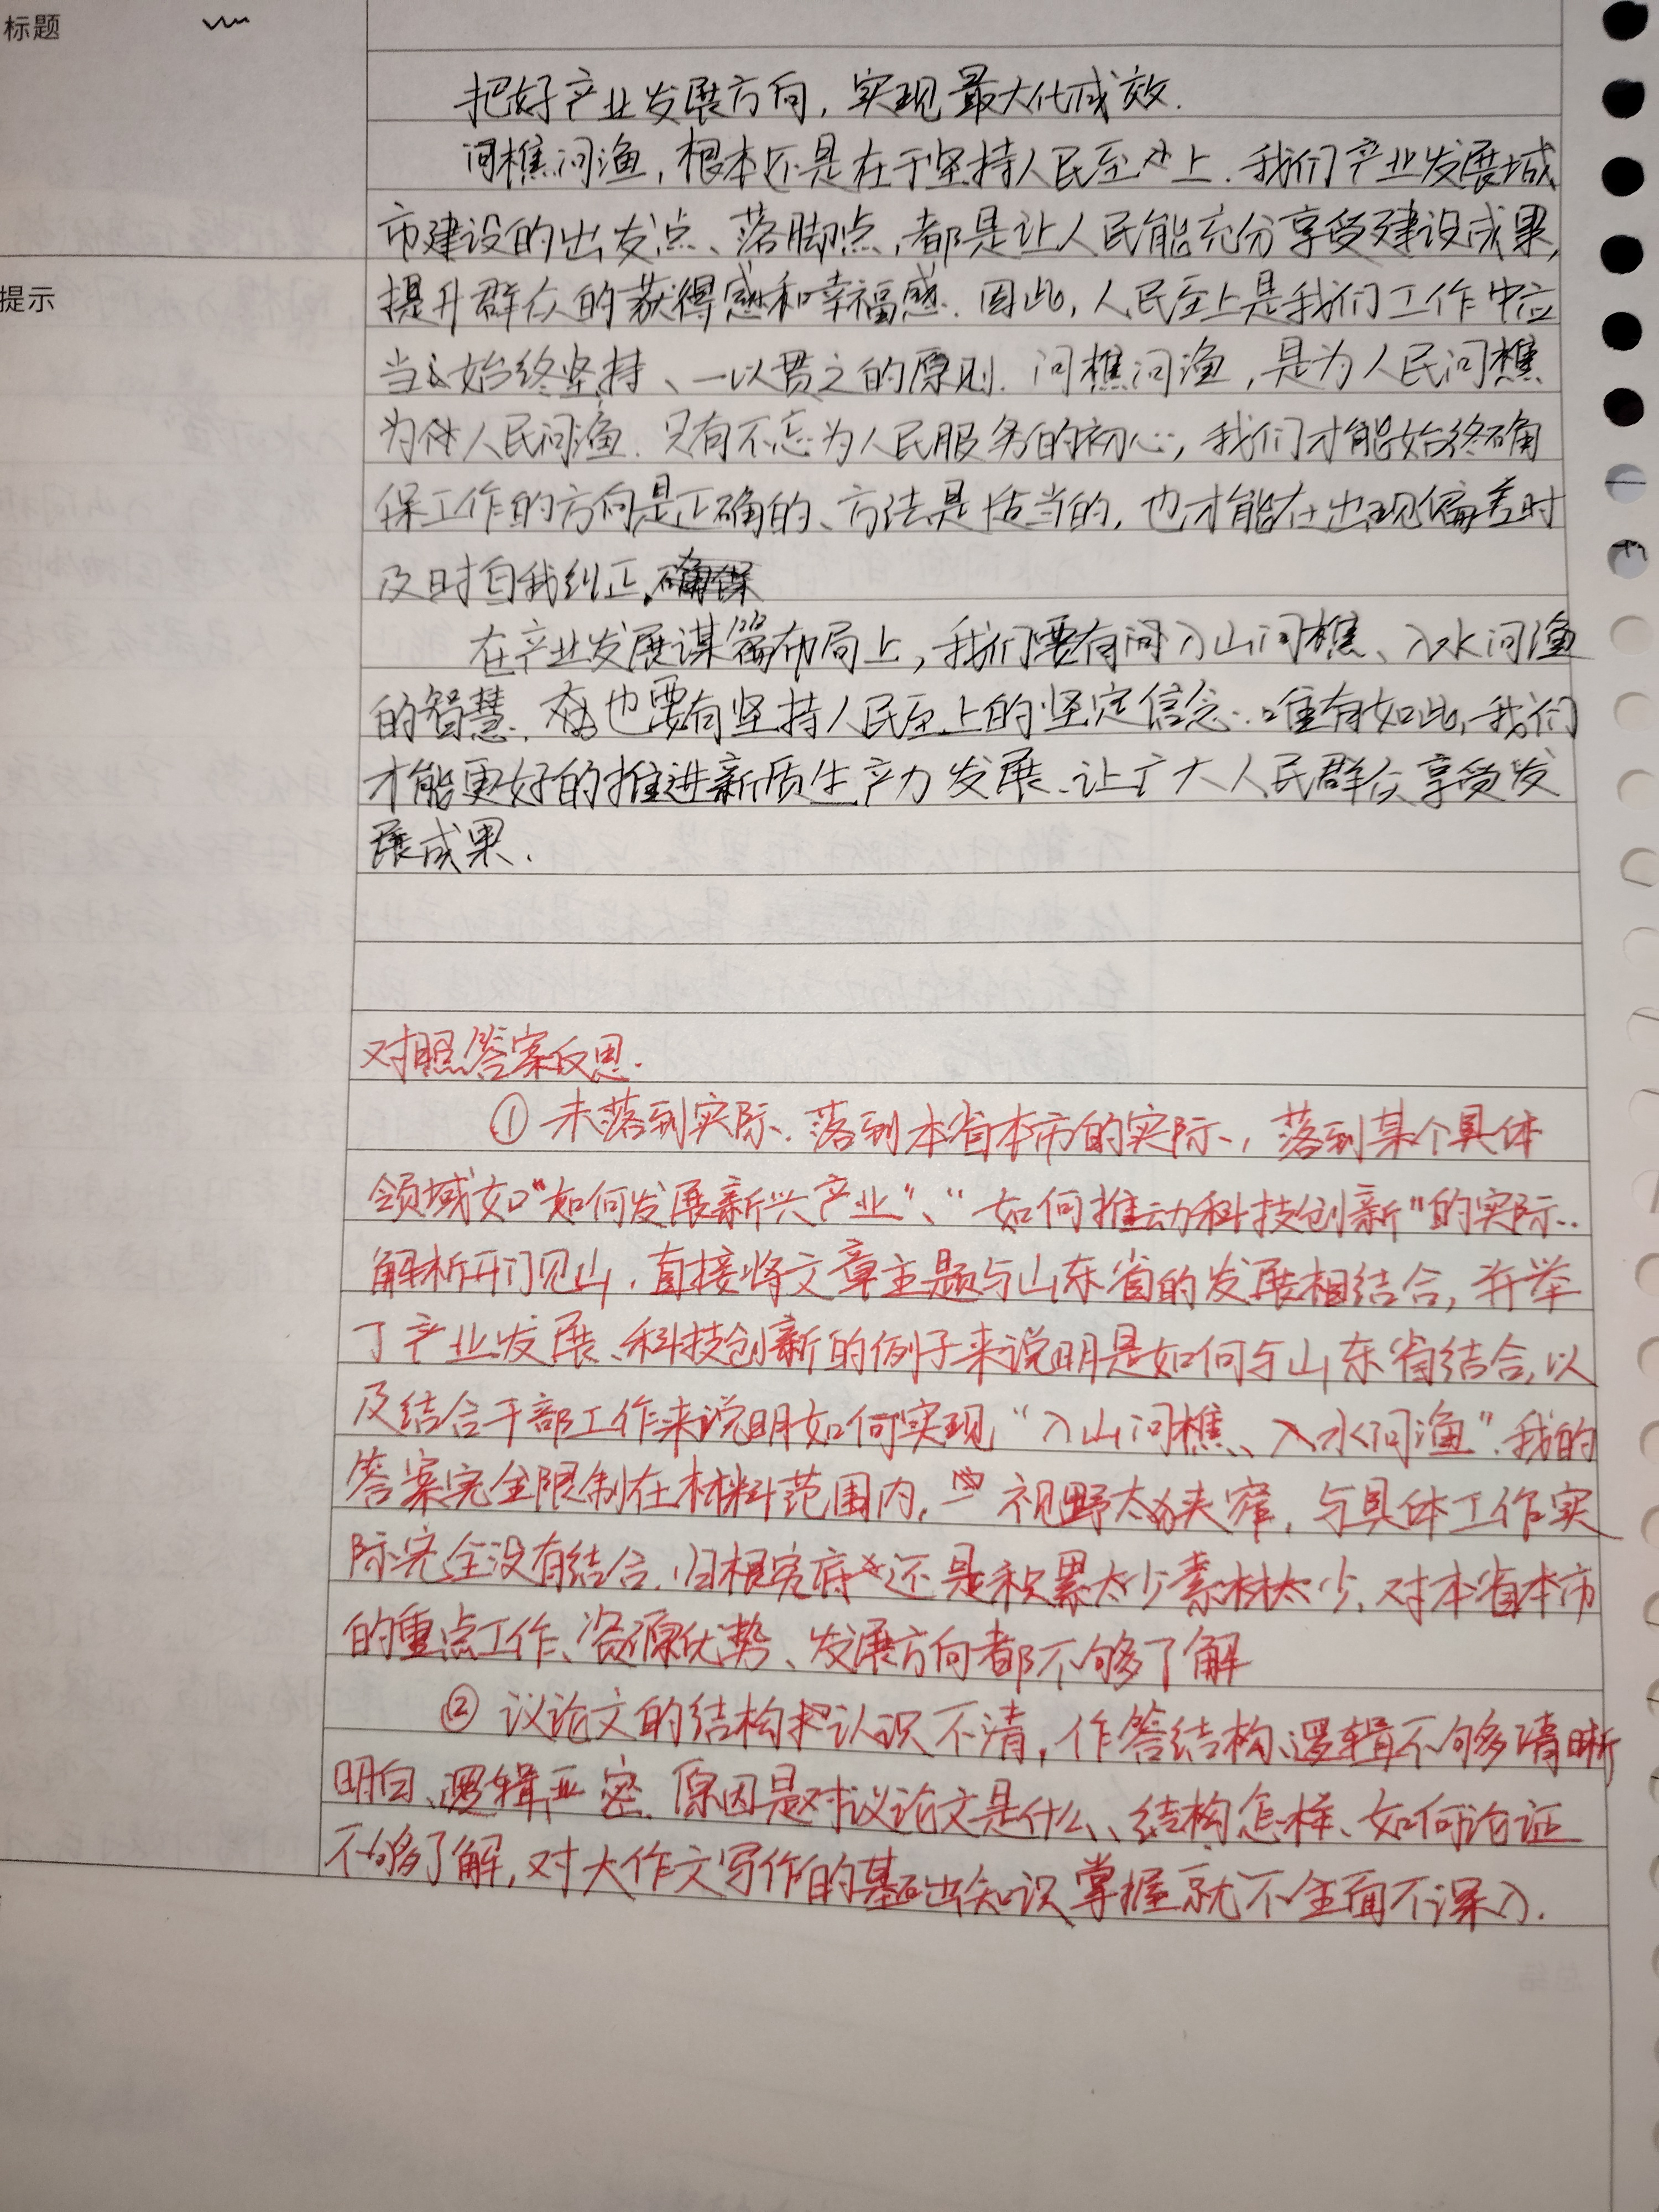 标题
把好产业发展方向，实现最大化成效.
问樵问渔，根本还是在于坚持人民至上.我们产业发展城
市建设的出发点、落脚点，都是让人民能充分享受建设成果，
提示
提升群众的获得感和幸福感.因此，人民至上是我们工作中应
当始终坚持、一以贯之的原则.问樵问渔，是为人民问樵
为人民问渔.只有不忘为人民服务的初心，我们才能始终确
保工作的方向是正确的、方法是恰当的，也才能在出现偏差时
及时自我纠正.
在产业发展谋篇布局上，我们要有入山问樵、入水问渔
的智慧.也要有坚持人民至上的坚定信念.唯有如此，我们
才能更好的推进新质生产力发展、让广大人民群众享受发
展成果.
对照答案反思.
① 未落到实际.落到本省本市的实际、，落到某个具体
领域如“如何发展新兴产业”、“如何推动科技创新”的实际..
解析开门见山.直接将文章主题与山东省的发展相结合，并举
了产业发展、科技创新的例子来说明是如何与山东省结合，以
及结合干部工作来说明如何实现“入山问樵、入水问渔”.我的
答案完全限制在材料范围内，视野太狭窄，与具体工作实
际完全没有结合.归根究底还是积累太少素材太少.对本省本市
的重点工作、资源优势、发展方向都不够了解
② 议论文的结构认识不清，作答结构、逻辑不够清晰
明白、逻辑严密.原因是对议论文是什么、结构怎样、如何论证
不够了解，对大作文写作的基础知识掌握就不全面不深入.